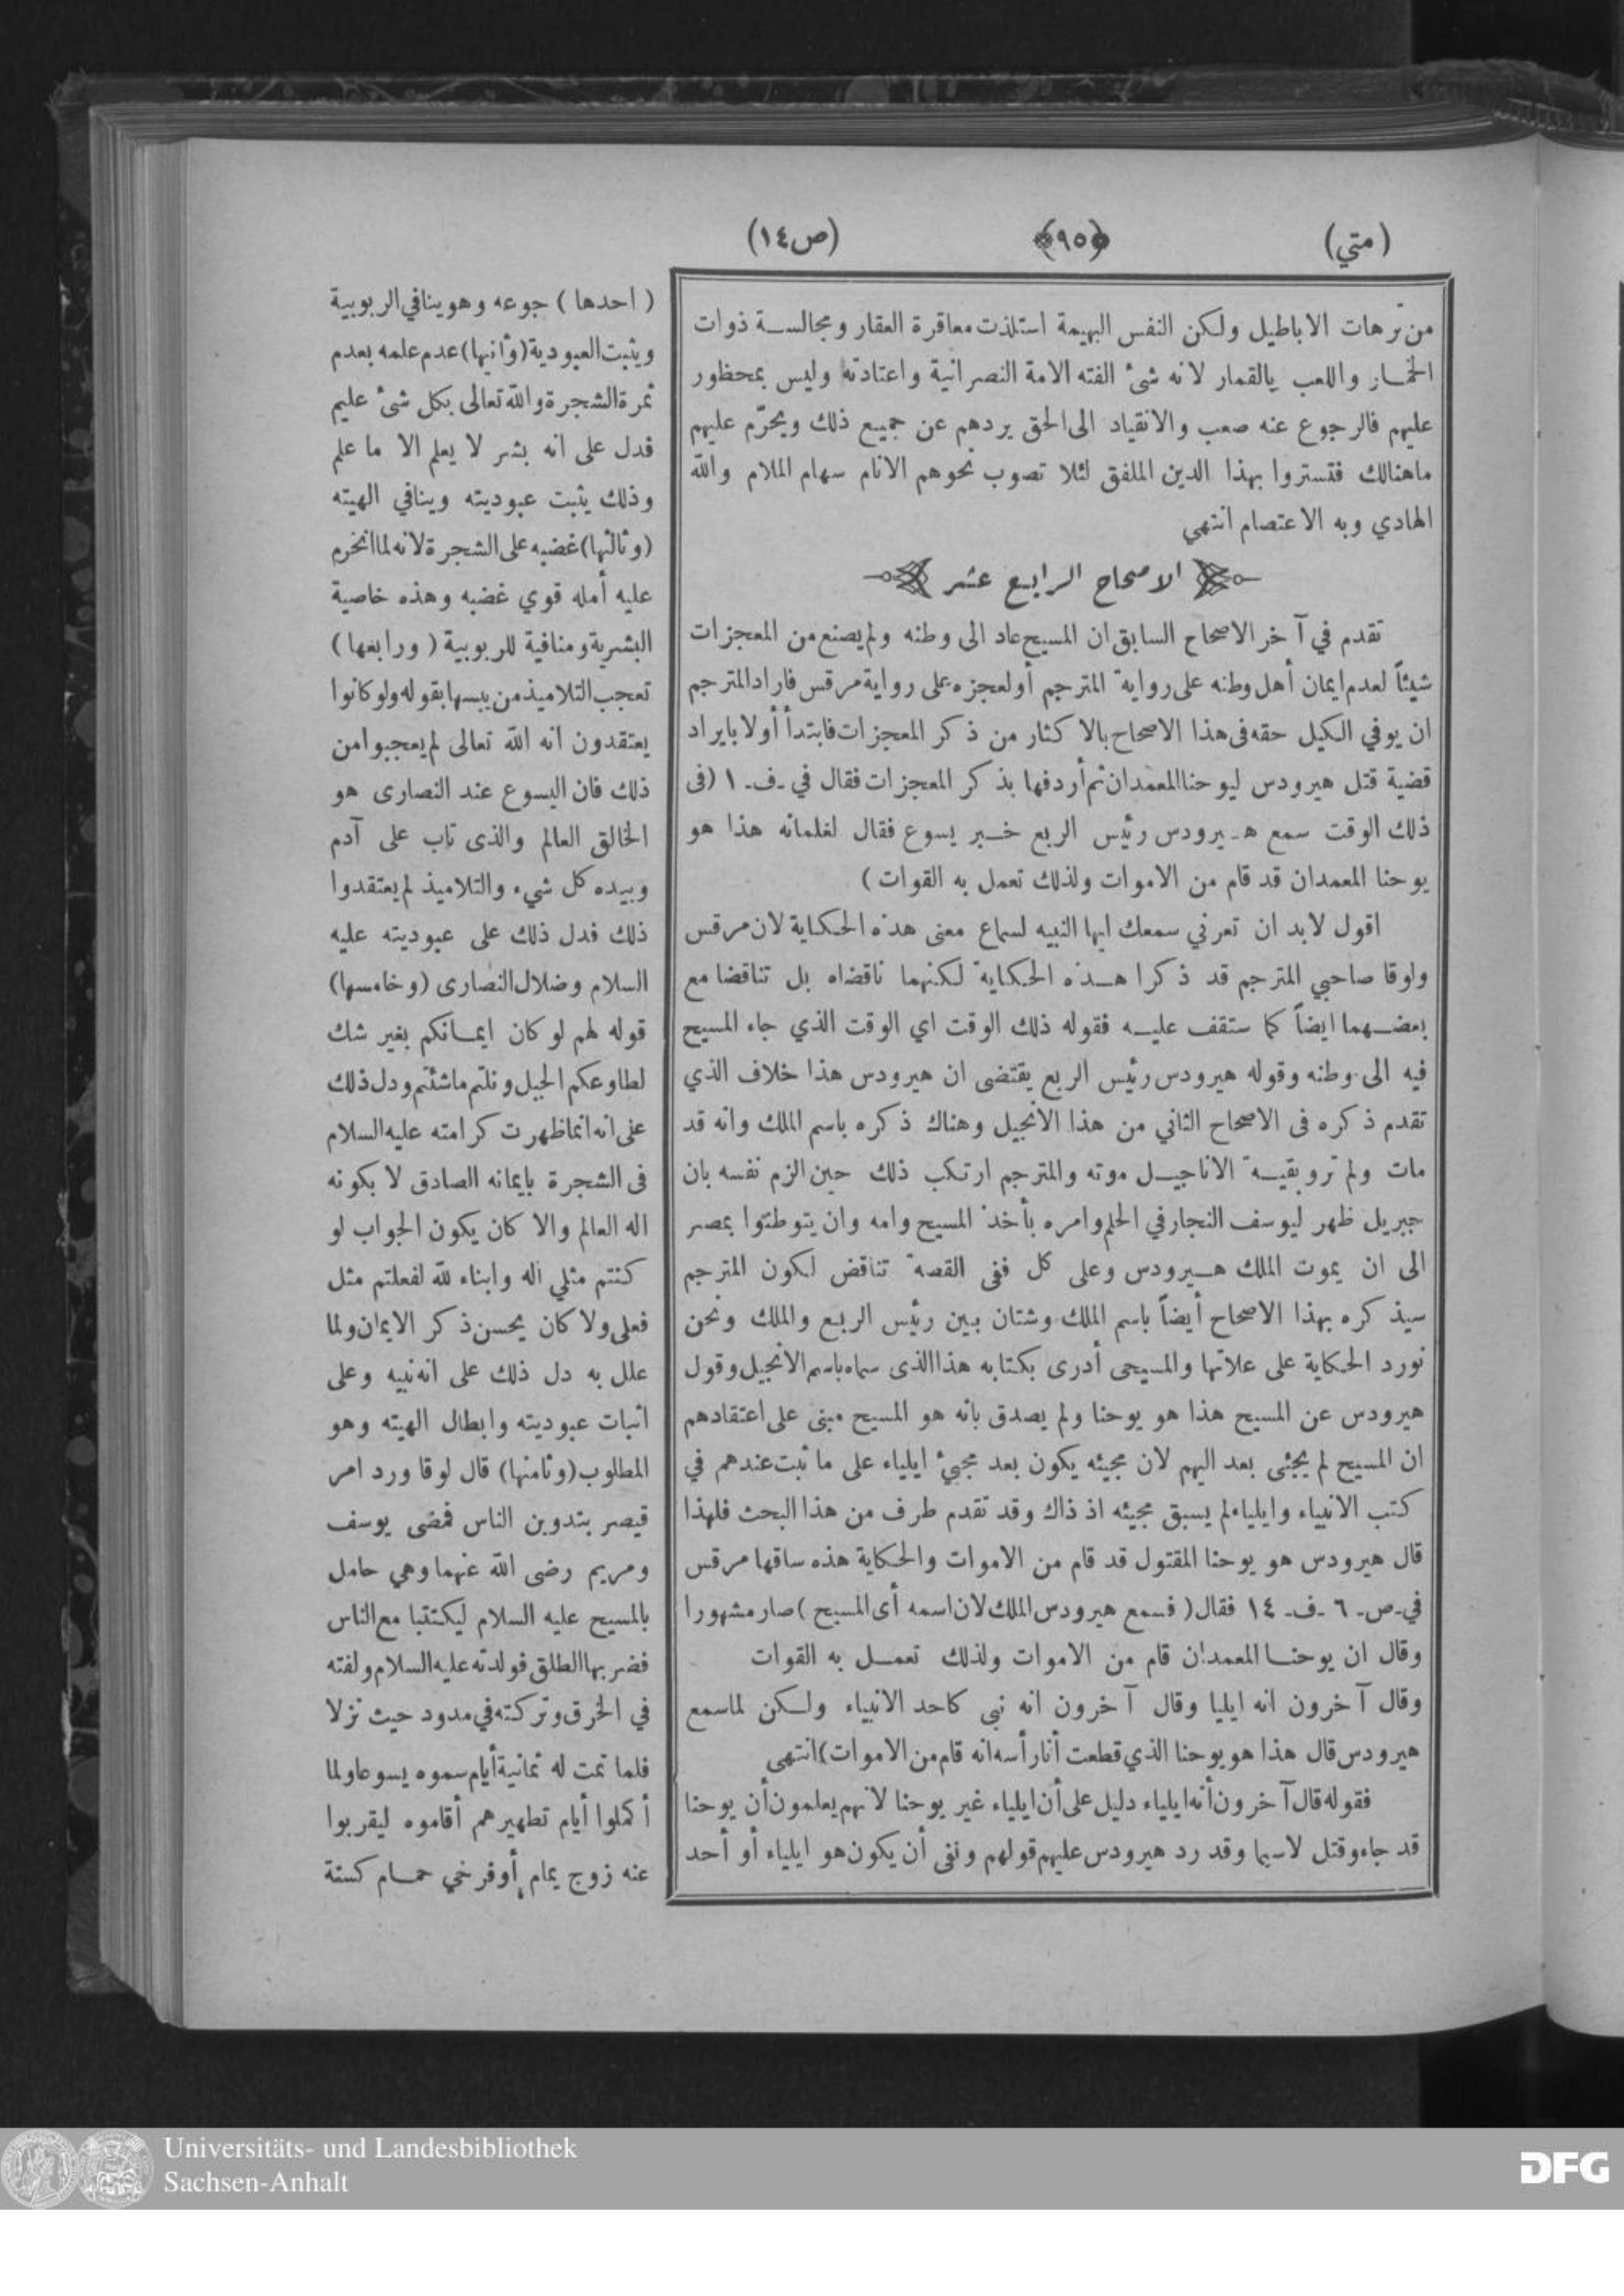 (متي)
﴿٩٥﴾
(ص١٤)
من ترهات الاباطيل ولكن النفس البهيمة استلذت معاقرة العقار ومجالسة ذوات
الخمار واللعب يالقمار لانه شئ الفته الامة النصرانية واعتادته وليس بمحظور
عليهم فالرجوع عنه صعب والانقياد الى الحق يردهم عن جميع ذلك ويحرّم عليهم
ماهنالك فتستروا بهذا الدين الملفق لئلا تصوب نحوهم الانام سهام الملام والله
الهادي وبه الاعتصام انتهي
الاصحاح الرابع عشر
تقدم في آخر الاصحاح السابق ان المسيح عاد الى وطنه ولم يصنع من المعجزات
شيئاً لعدم ايمان أهل وطنه على رواية المترجم أو لعجزه على رواية مرقس فاراد المترجم
ان يوفي الكيل حقه فى هذا الاصحاح بالاكثار من ذكر المعجزات فابتدأ أولا بايراد
قضية قتل هيرودس ليوحنا المعمدان ثم أردفها بذكر المعجزات فقال في ـف ـ ١ (فى
ذلك الوقت سمع هيرودس رئيس الربع خبر يسوع فقال لغلمانه هذا هو
يوحنا المعمدان قد قام من الاموات ولذلك تعمل به القوات)
اقول لابد ان تعرني سمعك ايها النبيه لسماع معنى هذه الحكاية لان مرقس
ولوقا صاحبي المترجم قد ذكرا هذه الحكاية لكنهما ناقضاه بل تناقضا مع
بعضهما ايضاً كما ستقف عليه فقوله ذلك الوقت اي الوقت الذي جاء المسيح
فيه الى وطنه وقوله هيرودس رئيس الربع يقتضى ان هيرودس هذا خلاف الذي
تقدم ذكره فى الاصحاح الثاني من هذا الانجيل وهناك ذكره باسم الملك وانه قد
مات ولم ترو بقية الاناجيل موته والمترجم ارتكب ذلك حين الزم نفسه بان
جبريل ظهر ليوسف النجار في الحلم وامره بأخذ المسيح وامه وان يتوطنوا بمصر
الى ان يموت الملك هيرودس وعلى كل ففى القصة تناقض لكون المترجم
سيذكره بهذا الاصحاح أيضاً باسم الملك وشتان بين رئيس الربع والملك ونحن
نورد الحكاية على علاتها والمسيحى أدرى بكتابه هذا الذى سماه باسم الانجيل وقول
هيرودس عن المسيح هذا هو يوحنا ولم يصدق بانه هو المسيح مبنى على اعتقادهم
ان المسيح لم يجئى بعد اليهم لان مجيئه يكون بعد مجيئ ايلياء على ما ثبت عندهم في
كتب الانبياء وايلياء لم يسبق مجيئه اذ ذاك وقد تقدم طرف من هذا البحث فلهذا
قال هيرودس هو يوحنا المقتول قد قام من الاموات والحكاية هذه ساقها مرقس
في ـص ـ ٦ ـف ـ ١٤ فقال (فسمع هيرودس الملك لان اسمه أى المسيح) صار مشهورا
وقال ان يوحنا المعمدان قام من الاموات ولذلك تعمل به القوات
وقال آخرون انه ايليا وقال آخرون انه نبى كاحد الانبياء ولكن لما سمع
هيرودس قال هذا هو يوحنا الذي قطعت أنا رأسه انه قام من الاموات) انتهى
فقوله قال آخرون أنه ايلياء دليل على أن ايلياء غير يوحنا لانهم يعلمون أن يوحنا
قد جاء وقتل لاسيما وقد رد هيرودس عليهم قولهم ونفى أن يكون هو ايلياء أو أحد
(احدها) جوعه وهو ينافي الربوبية
ويثبت العبودية (وثانيها) عدم علمه بعدم
ثمرة الشجرة والله تعالى بكل شئ عليم
فدل على انه بشر لا يعلم الا ما علم
وذلك يثبت عبوديته وينافي الهيته
(وثالثها) غضبه على الشجرة لانه لما انخرم
عليه أمله قوي غضبه وهذه خاصية
البشرية ومنافية للربوبية (ورابعها)
تعجب التلاميذ من يبسها بقوله ولو كانوا
يعتقدون انه الله تعالى لم يعجبوا من
ذلك فان اليسوع عند النصارى هو
الخالق العالم والذى تاب على آدم
وبيده كل شيء والتلاميذ لم يعتقدوا
ذلك فدل ذلك على عبوديته عليه
السلام وضلال النصارى (وخامسها)
قوله لهم لو كان ايمانكم بغير شك
لطاوعكم الجبل ونلتم ماشئتم ودل ذلك
على انه انما ظهرت كرامته عليه السلام
فى الشجرة بايمانه الصادق لا بكونه
اله العالم والا كان يكون الجواب لو
كنتم مثلي اله وابناء لله لفعلتم مثل
فعلى ولا كان يحسن ذكر الايمان ولما
علل به دل ذلك على انه نبيه وعلى
اثبات عبوديته وابطال الهيته وهو
المطلوب (وثامنها) قال لوقا ورد امر
قيصر بتدوين الناس فمضى يوسف
ومريم رضى الله عنهما وهي حامل
بالمسيح عليه السلام ليكتتبا مع الناس
فضربها الطلق فولدته عليه السلام ولفته
في الخرق وتركته في مدود حيث نزلا
فلما تمت له ثمانية أيام سموه يسوعا ولما
أكملوا أيام تطهيرهم أقاموه ليقربوا
عنه زوج يمام أو فرخي حمام كسنة
Universitäts- und Landesbibliothek
Sachsen-Anhalt
DFG